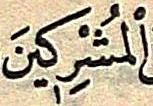 ٱلْمُشْرِكِينَ